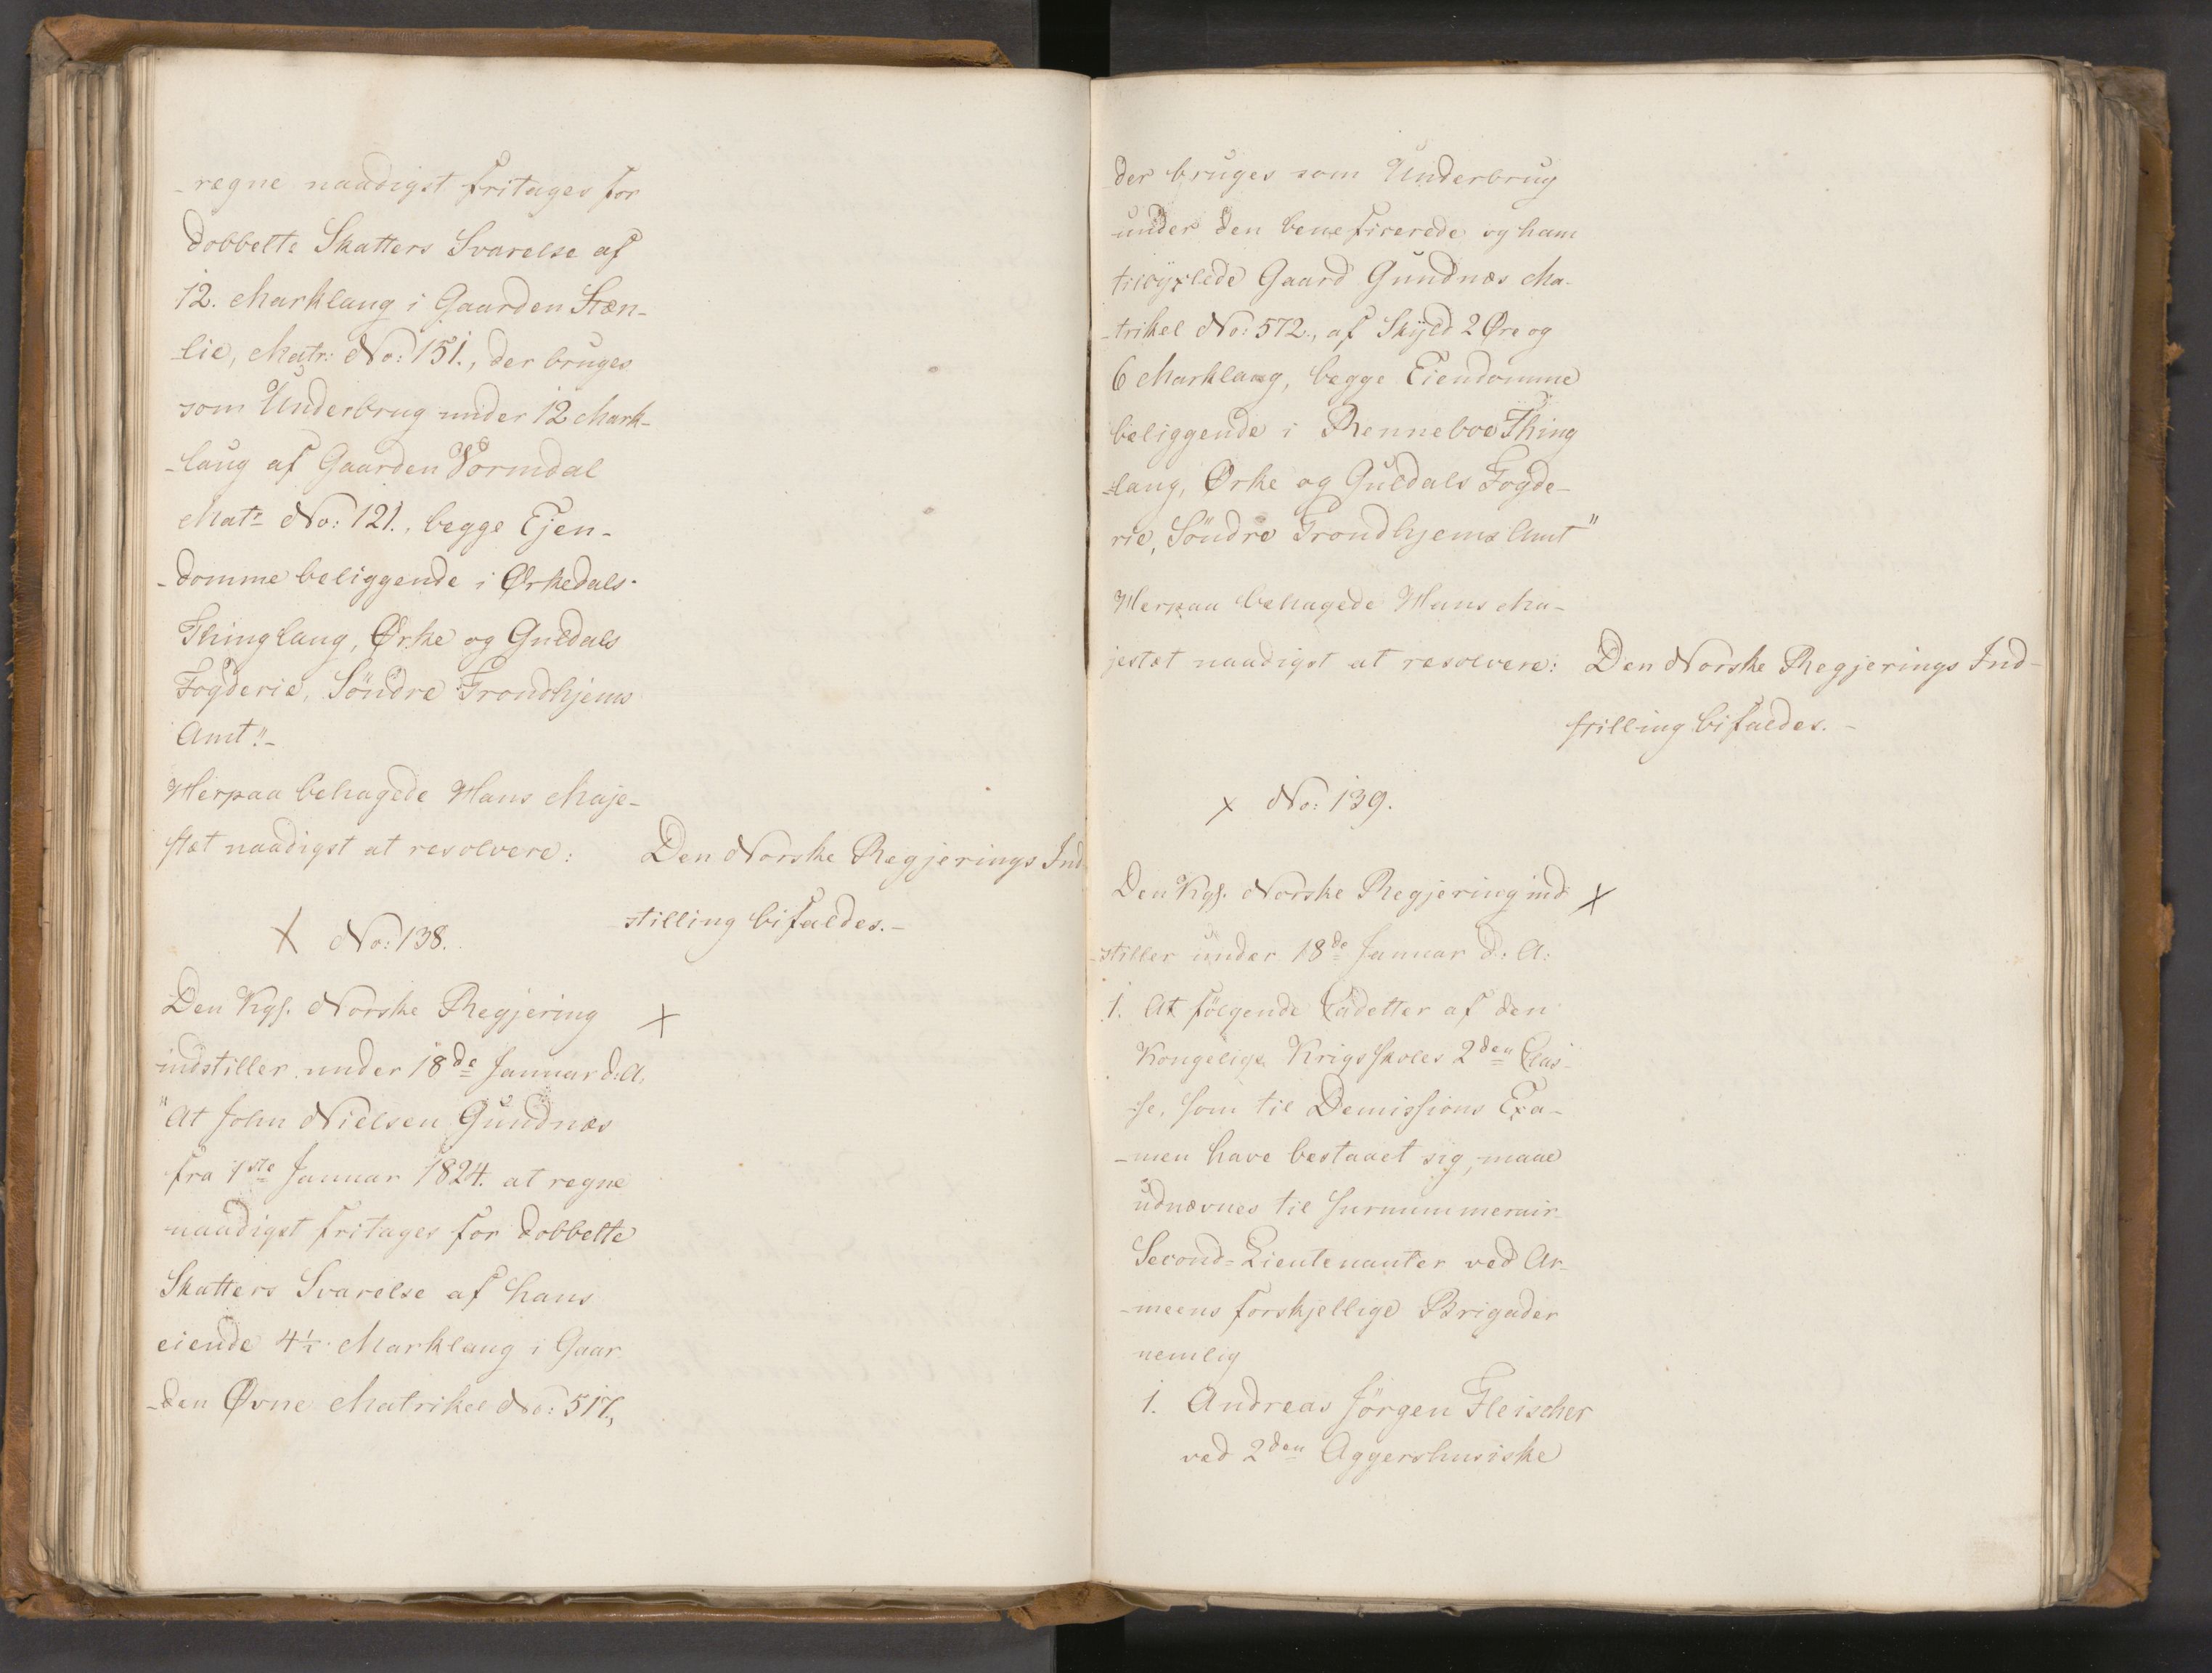 -regne naadigst fritages for
dobbelte Skatters Svarelse af
12. Marklaug i Gaarden Stæn-
-lie, Matr: No: 151., der bruges
som Underbrug under 12 Mark-
-laug af Gaarden Vormdal
Matr No: 121., begge Ejen-
-domme beliggende i Ørkedals-
Thinglaug, Ørke og Guldals
Fogderie, Söndre Trondhjems
Amt".-
Herpaa behagede Hans Maje-
stæt naadigst at resolvere:
Den Norske Regjerings Ind-
-stilling bifaldes.-
X No: 138.
Den Kgs. Norske Regjering X
indstiller under 18de Januar d: A:
"At John Nielsen Gundnæs
fra 1ste Januar 1824. at regne
naadigst fritages for dobbelte
Skatters Svarelse af hans
eiende 4½ Marklaug i Gaar-
-den Øvne Matrikel No: 517.,
der bruges som Underbrug
under den beneficerede og ham
tilbyxlede Gaard Gundnæs Ma-
-trikel No: 572., af Skyld 2 Øre og
6 Marklaug, begge Eiendomme
beliggende i Renneboe Thing
-laug, Ørke og Guldals Fogde-
rie, Söndre Trondhjems Amt"
Herpaa behagede Hans Ma-
jestæt naadigst at resolvere:
Den Norske Regjerings Ind-
stilling bifaldes.-
x No: 139.
Den Kgs. Norske Regjering ind- X
-stiller under 18de Januar d: A:
1. At fölgende Cadetter af den
Kongelige Krigsskoles 2den Clas-
-se, som til Demissions Exa-
-men have bestaaet sig, maae
udnævnes til surnummerair-
Second-Lieutenanter ved Ar-
-meens forskjellige Brigader
nemlig
1. Andreas Jörgen Fleischer
ved 2den Aggershusiske